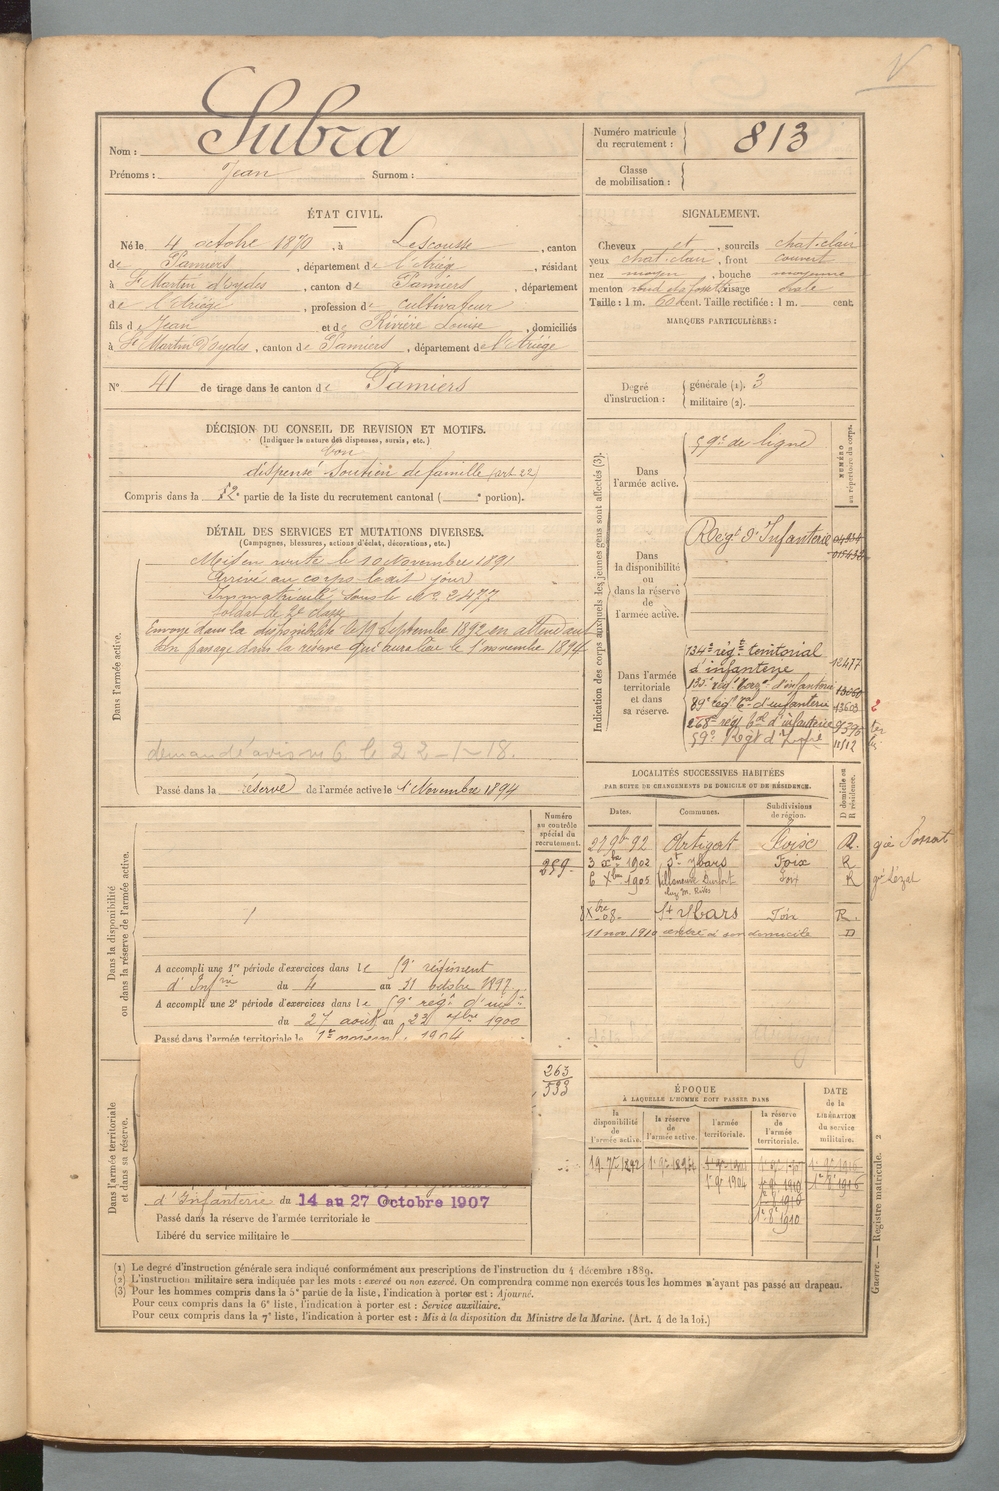 Nom : Subra
Prénoms : Jean Surnom :
Numéro matricule du recrutement : 813
Classe de mobilisation :
ÉTAT CIVIL.
Né le 4 octobre 1870, à Lescousse, canton
de Pamiers, département de l'Ariège, résidant
à St Martin d'oydes, canton de Pamiers, département
de l'Ariège, profession de cultivateur
fils de Jean et de Rivière Louise, domiciliés
à St Martin d'oydes, canton de Pamiers, département de l'Ariège
N° 41 de tirage dans le canton de Pamiers
SIGNALEMENT.
Cheveux et, sourcils chat-clair
yeux chat-clair, front couvert
nez moyen, bouche moyenne
menton rond à fossette visage ovale
Taille : 1 m. 60 cent. Taille rectifiée : 1 m. cent.
MARQUES PARTICULIÈRES :
Degré d'instruction : générale (1). 3
militaire (2).
DÉCISION DU CONSEIL DE REVISION ET MOTIFS.
(Indiquer la nature des dispenses, sursis, etc.)
bon
dispensé Soutien de famille (art 22)
Compris dans la 2e partie de la liste du recrutement cantonal ( e portion).
DÉTAIL DES SERVICES ET MUTATIONS DIVERSES.
(Campagnes, blessures, actions d'éclat, décorations, etc.)
Dans l'armée active.
Mis en route le 10 Novembre 1891
Arrivé au corps le dit jour
Immatriculé sous le No 2477
Soldat de 2e classe
Envoyé dans la disponibilité le 19 Septembre 1892 en attendant
son passage dans la réserve qui aura lieu le 1er novembre 1894
demandé avis 6 le 22-1-18.
Passé dans la réserve de l'armée active le 1er Novembre 1894
Indication des corps auxquels les jeunes gens sont affectés (3).
NUMÉRO au répertoire du corps.
Dans l'armée active.
59e de ligne
Dans la disponibilité ou dans la réserve de l'armée active.
Régt d'Infanterie
Dans l'armée territoriale et dans sa réserve.
134e régt territorial
d'infanterie 12477
135e régt terr d'infanterie
89e régt tal d'infanterie 13603 2
268e régt tal d'infanterie 9396 ter
59e Régt d'Infie 11512 bis
LOCALITÉS SUCCESSIVES HABITÉES
PAR SUITE DE CHANGEMENTS DE DOMICILE OU DE RÉSIDENCE.
Dates. Communes. Subdivisions de région. D domicile ou R résidence.
27 9b 92 Artigat Foix R.
3 xbre 1902 St Ybars Foix R
6 Xbre 1905 Villeneuve Durfort Foix R gie Lézat
chez M. Rives
Xbre 08 St Ybars Foix R.
11 nov. 1910 rentre à son domicile D
Dans la disponibilité ou dans la réserve de l'armée active.
Numéro au contrôle spécial du recrutement.
259
A accompli une 1re période d'exercices dans le 59e régiment
d'Infrie du 4 au 31 octobre 1897
A accompli une 2e période d'exercices dans le 59e régt d'infie
du 27 août au 23 xbre 1900
Passé dans l'armée territoriale le 1er novemb. 1904
Dans l'armée territoriale et dans sa réserve.
263
533
d'Infanterie du 14 au 27 Octobre 1907
Passé dans la réserve de l'armée territoriale le
Libéré du service militaire le
ÉPOQUE
À LAQUELLE L'HOMME DOIT PASSER DANS
DATE de la LIBÉRATION du service militaire.
la disponibilité de l'armée active. la réserve de l'armée active. l'armée territoriale. la réserve de l'armée territoriale.
19. 7bre 1892 1er 9bre 1894
1er 9bre 1904 1er 8bre 1910
1er 8bre 1910
(1) Le degré d'instruction générale sera indiqué conformément aux prescriptions de l'instruction du 4 décembre 1889.
(2) L'instruction militaire sera indiquée par les mots : exercé ou non exercé. On comprendra comme non exercés tous les hommes n'ayant pas passé au drapeau.
(3) Pour les hommes compris dans la 5e partie de la liste, l'indication à porter est : Ajourné.
Pour ceux compris dans la 6e liste, l'indication à porter est : Service auxiliaire.
Pour ceux compris dans la 7e liste, l'indication à porter est : Mis à la disposition du Ministre de la Marine. (Art. 4 de la loi.)
Guerre. — Registre matricule. 2